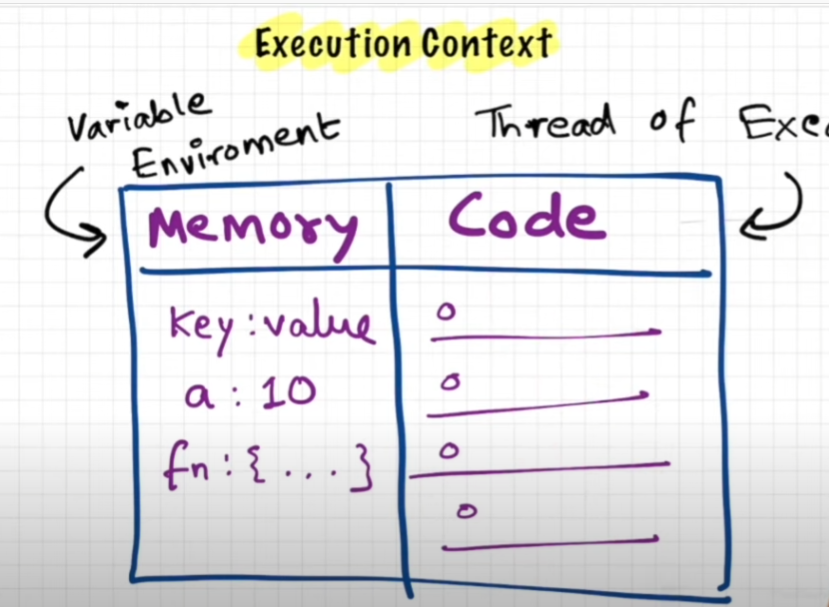 Execution Context
Variable
Enviroment
Thread of Exec
Memory
Code
key : value
a : 10
fn : { ... }